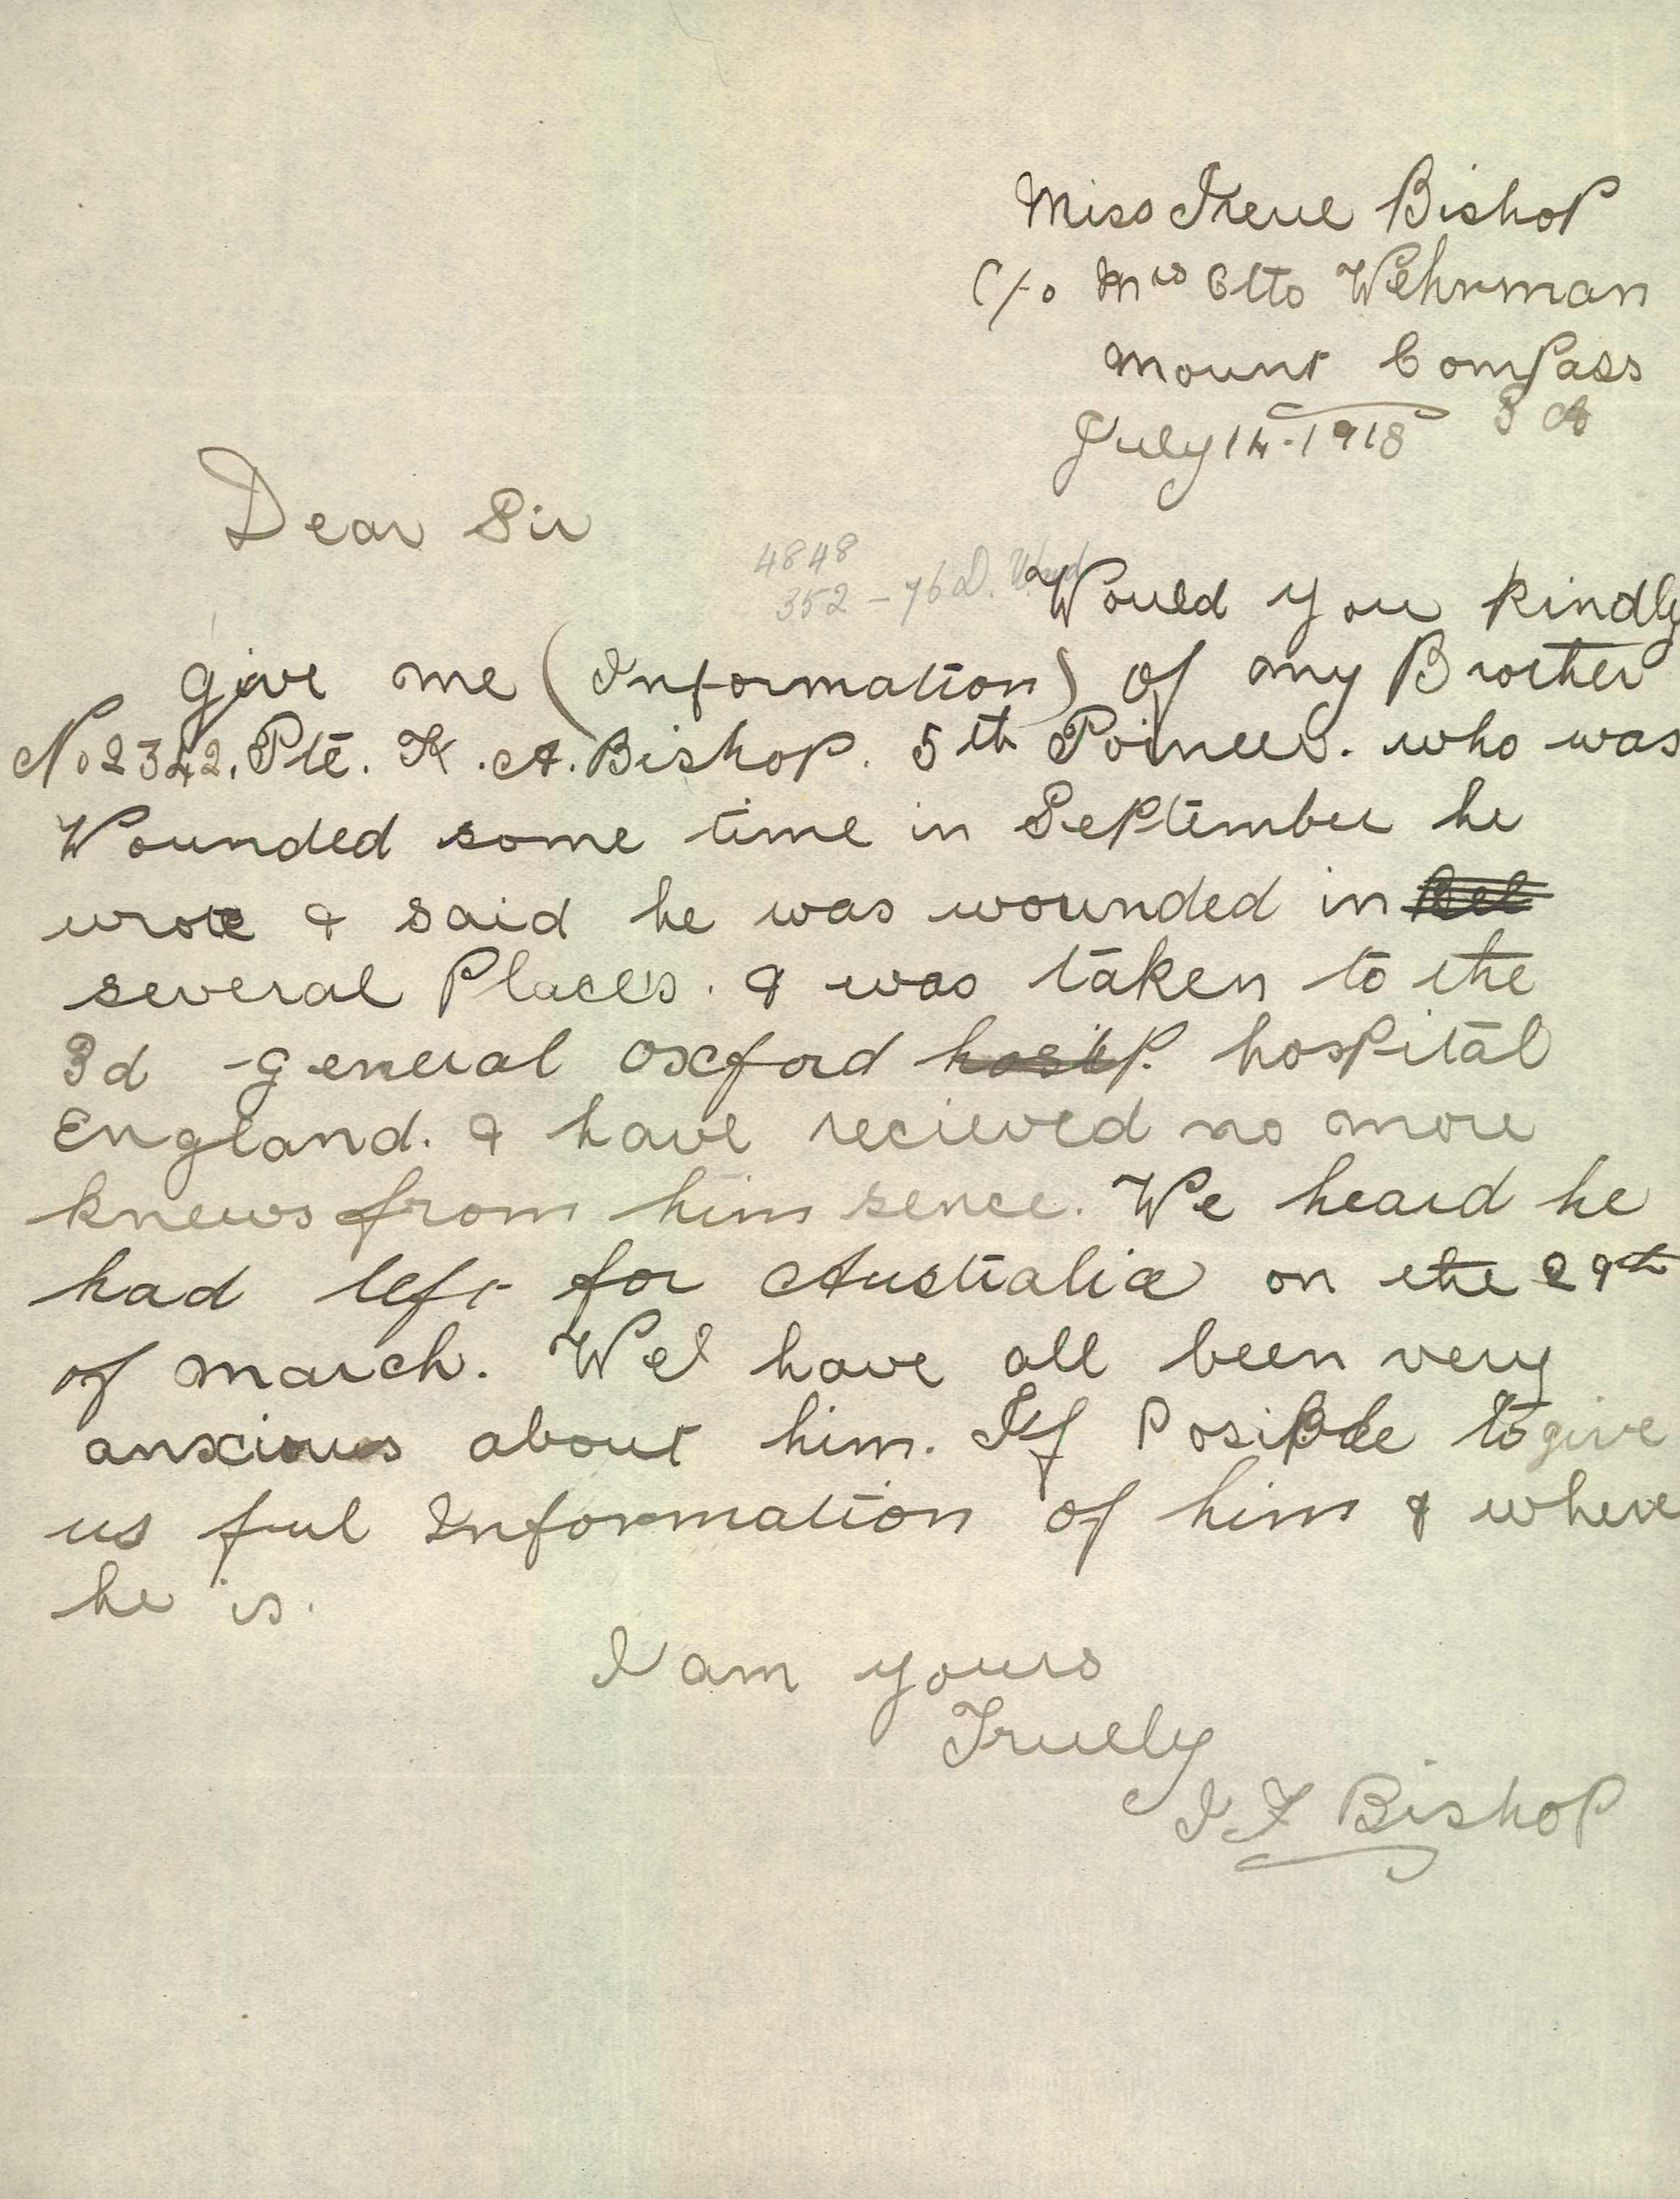 Miss Irene Bishop
C/o Mrs Otto Wehrman
Mount Compass
S A
July 14-1918
Dear Sir
4848
352 - 76 D.
Would you kindly
give me (Information) of my Brother
No 2342. Pte. K. A. Bishop. 5th Poineer. who was
Wounded some time in September he
wrote & said he was wounded in
several Places. & was taken to the
3d general Oxford hosp. hospital
England. & have recieved no more
knews from him sence. We heard he
had left for Australia on the 29th
of march. We have all been very
anxious about him. If Posible to give
us ful Information of him & where
he is.
I am yours
Truely
I F Bishop